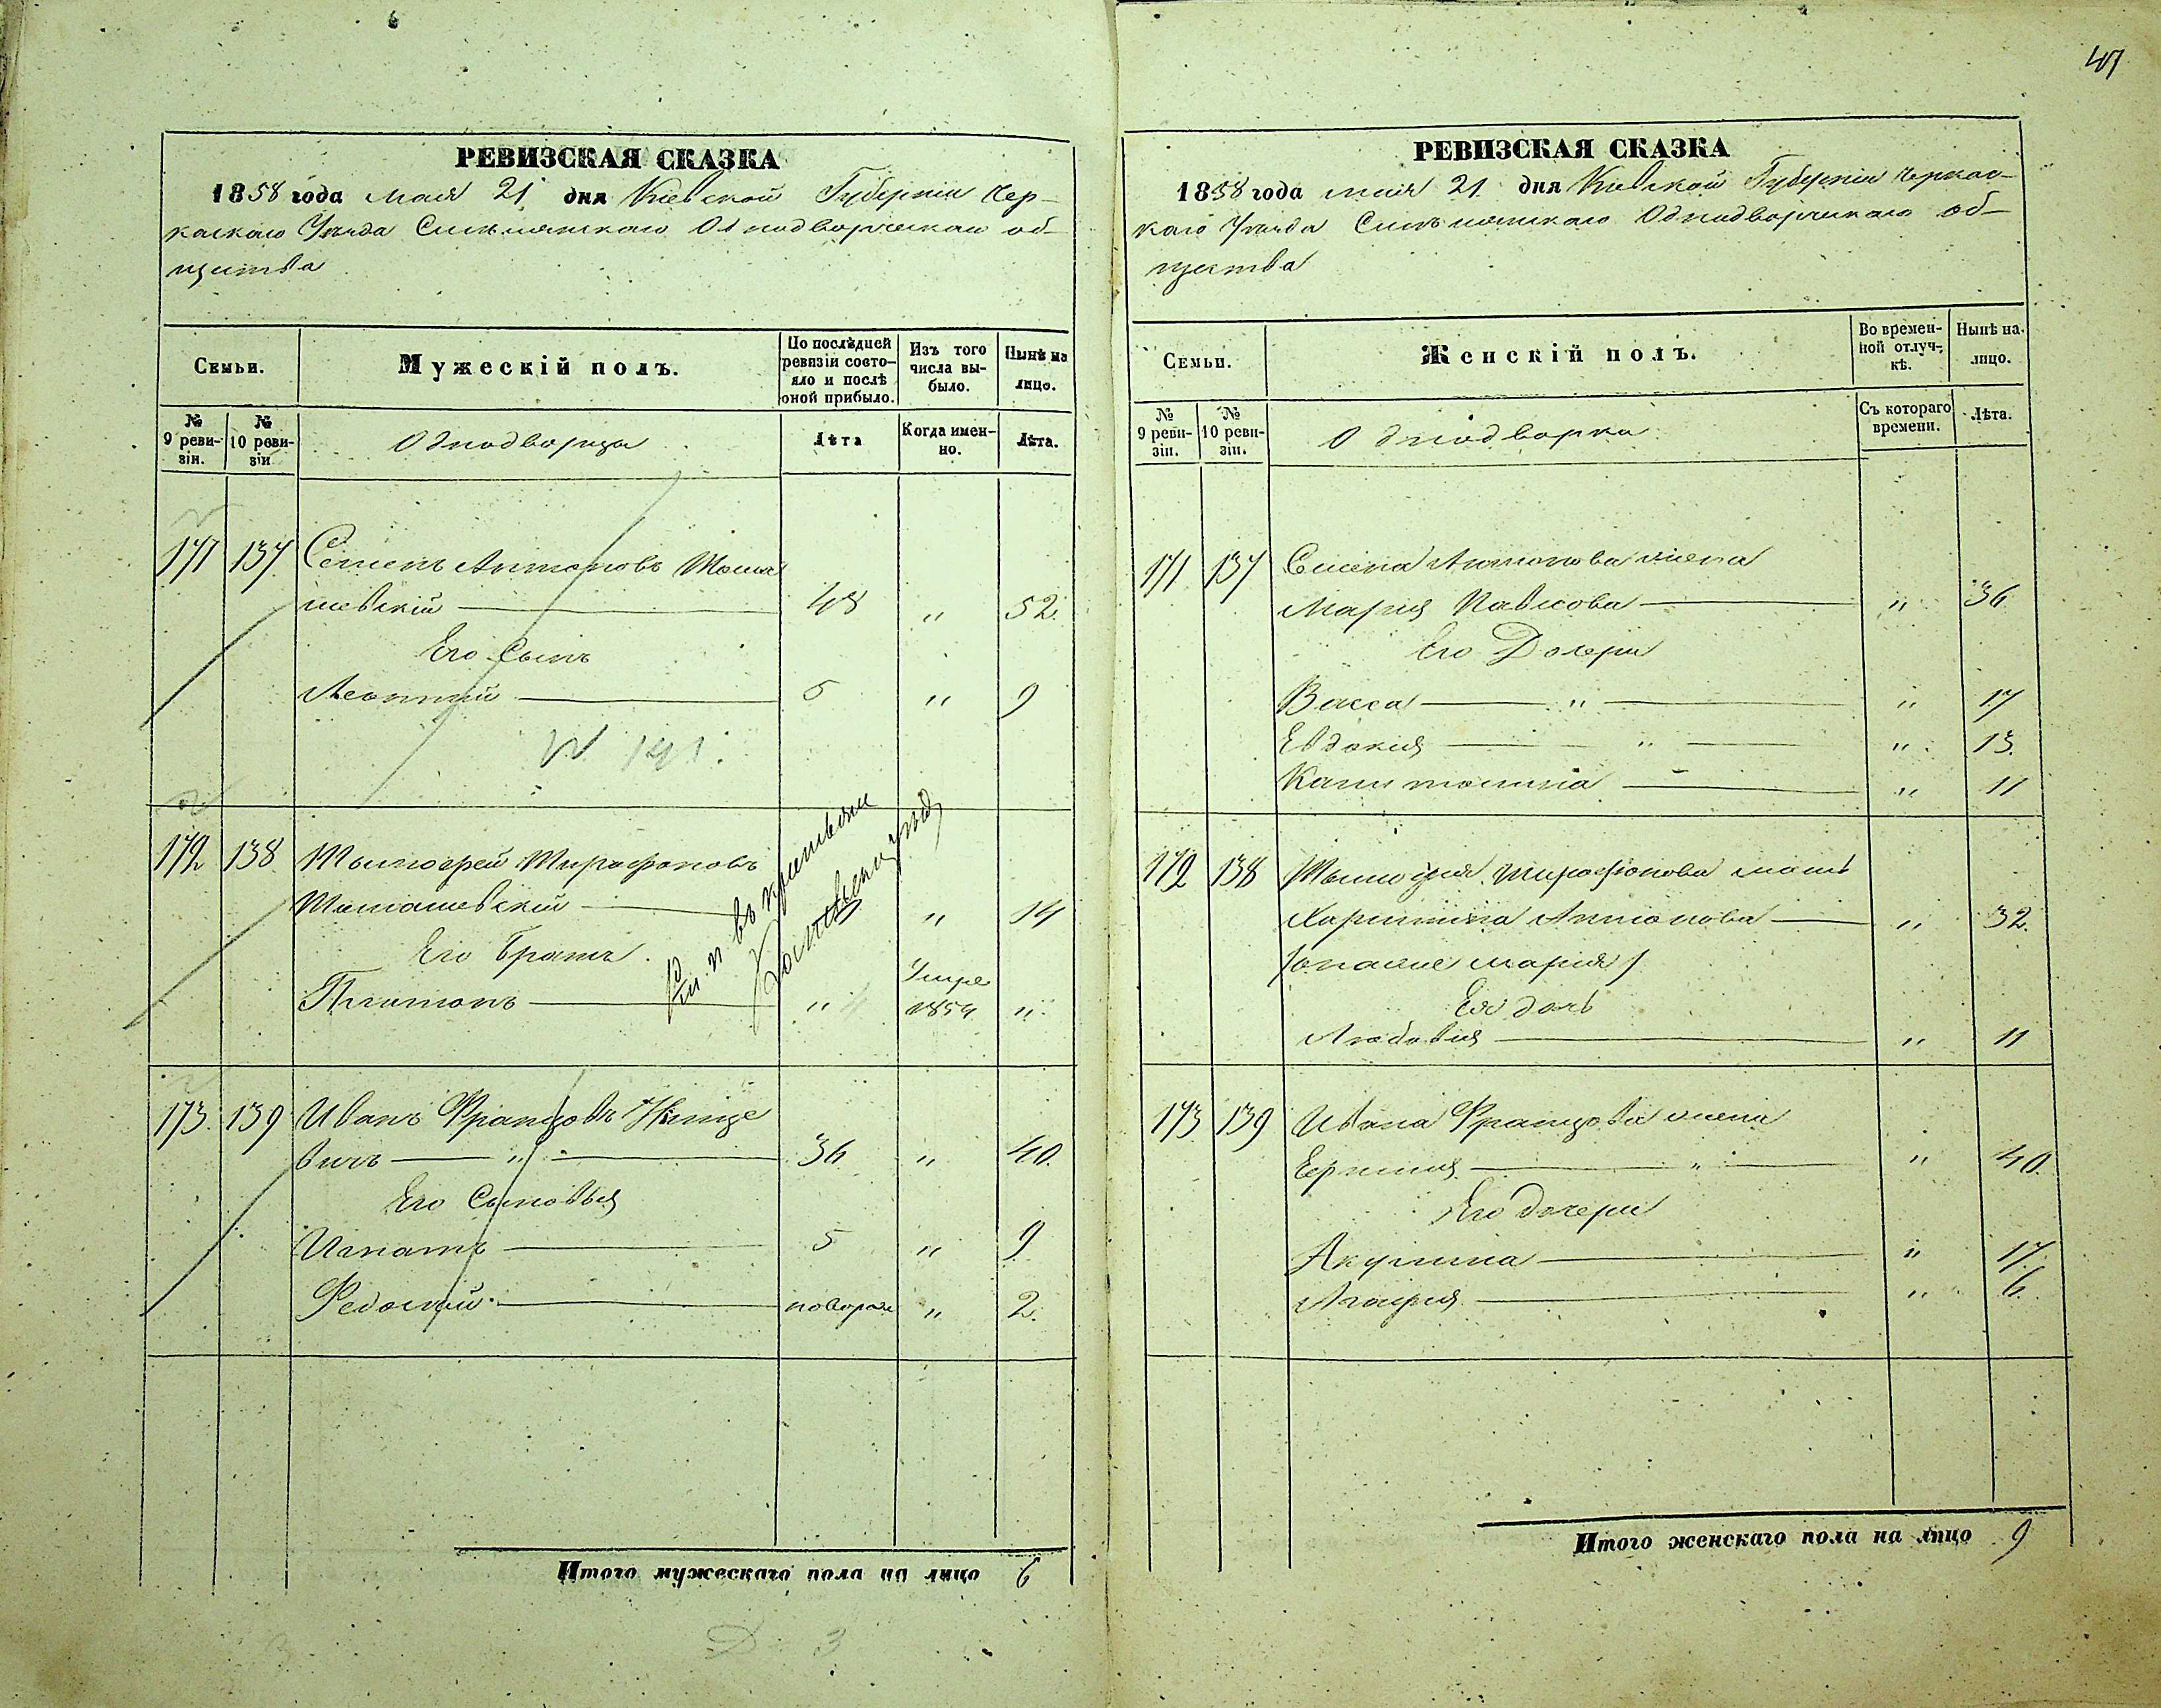 47
РЕВИЗСКАЯ СКАЗКА
1858 года мая 21 дня Кіевской Губерніи Чер-
каскаго Уѣзда Смѣлянскаго Однодворческаго об-
щества
Семьи.
Мужескій полъ.
По послѣдней ревизіи состо-
яло и послѣ
оной прибыло.
Изъ того
числа вы-
было.
Нынѣ на
лицо.
№
9 реви-
зіи.
№
10 реви-
зіи
Однодворца
Лѣта
Когда имен-
но.
Лѣта.
171 137 Семенъ Антоновъ
шевскій 48 " 52.
Его Сынъ
Леонтій 5 " 9
№ 141.
172 138
" 14
Его Братъ.
Платонъ " Умре 1854 "
въ
173. 139 Иванъ Францовъ
вичъ " 36 " 40.
Его Сыновья
Игнатъ 5 " 9
Федосий новорож " 2.
Итого мужескаго пола на лицо 6
3
РЕВИЗСКАЯ СКАЗКА
1858 года мая 21 дня Кіевской Губерніи Черкас-
каго Уѣзда Смѣлянскаго Однодворческаго об-
щества
Семьи.
Женскій полъ.
Во времен-
ной отлуч-
кѣ.
Нынѣ на-
лицо.
№
9 реви-
зіи.
№
10 реви-
зіи.
Однодворка
Съ котораго
времени.
Лѣта.
171 137 Семена Антонова жена
Мария Павлова " 36
Его Дочери
Васса " " 17
Евдокия " " 13.
Капитолина " 11
172 138 мать
Харитина Антонова " 32.
Ея дочь
" 11
173. 139 Ивана Францова жена
" " 40.
Его дочери
Акулина " 17.
" 6.
Итого женскаго пола на лицо 9